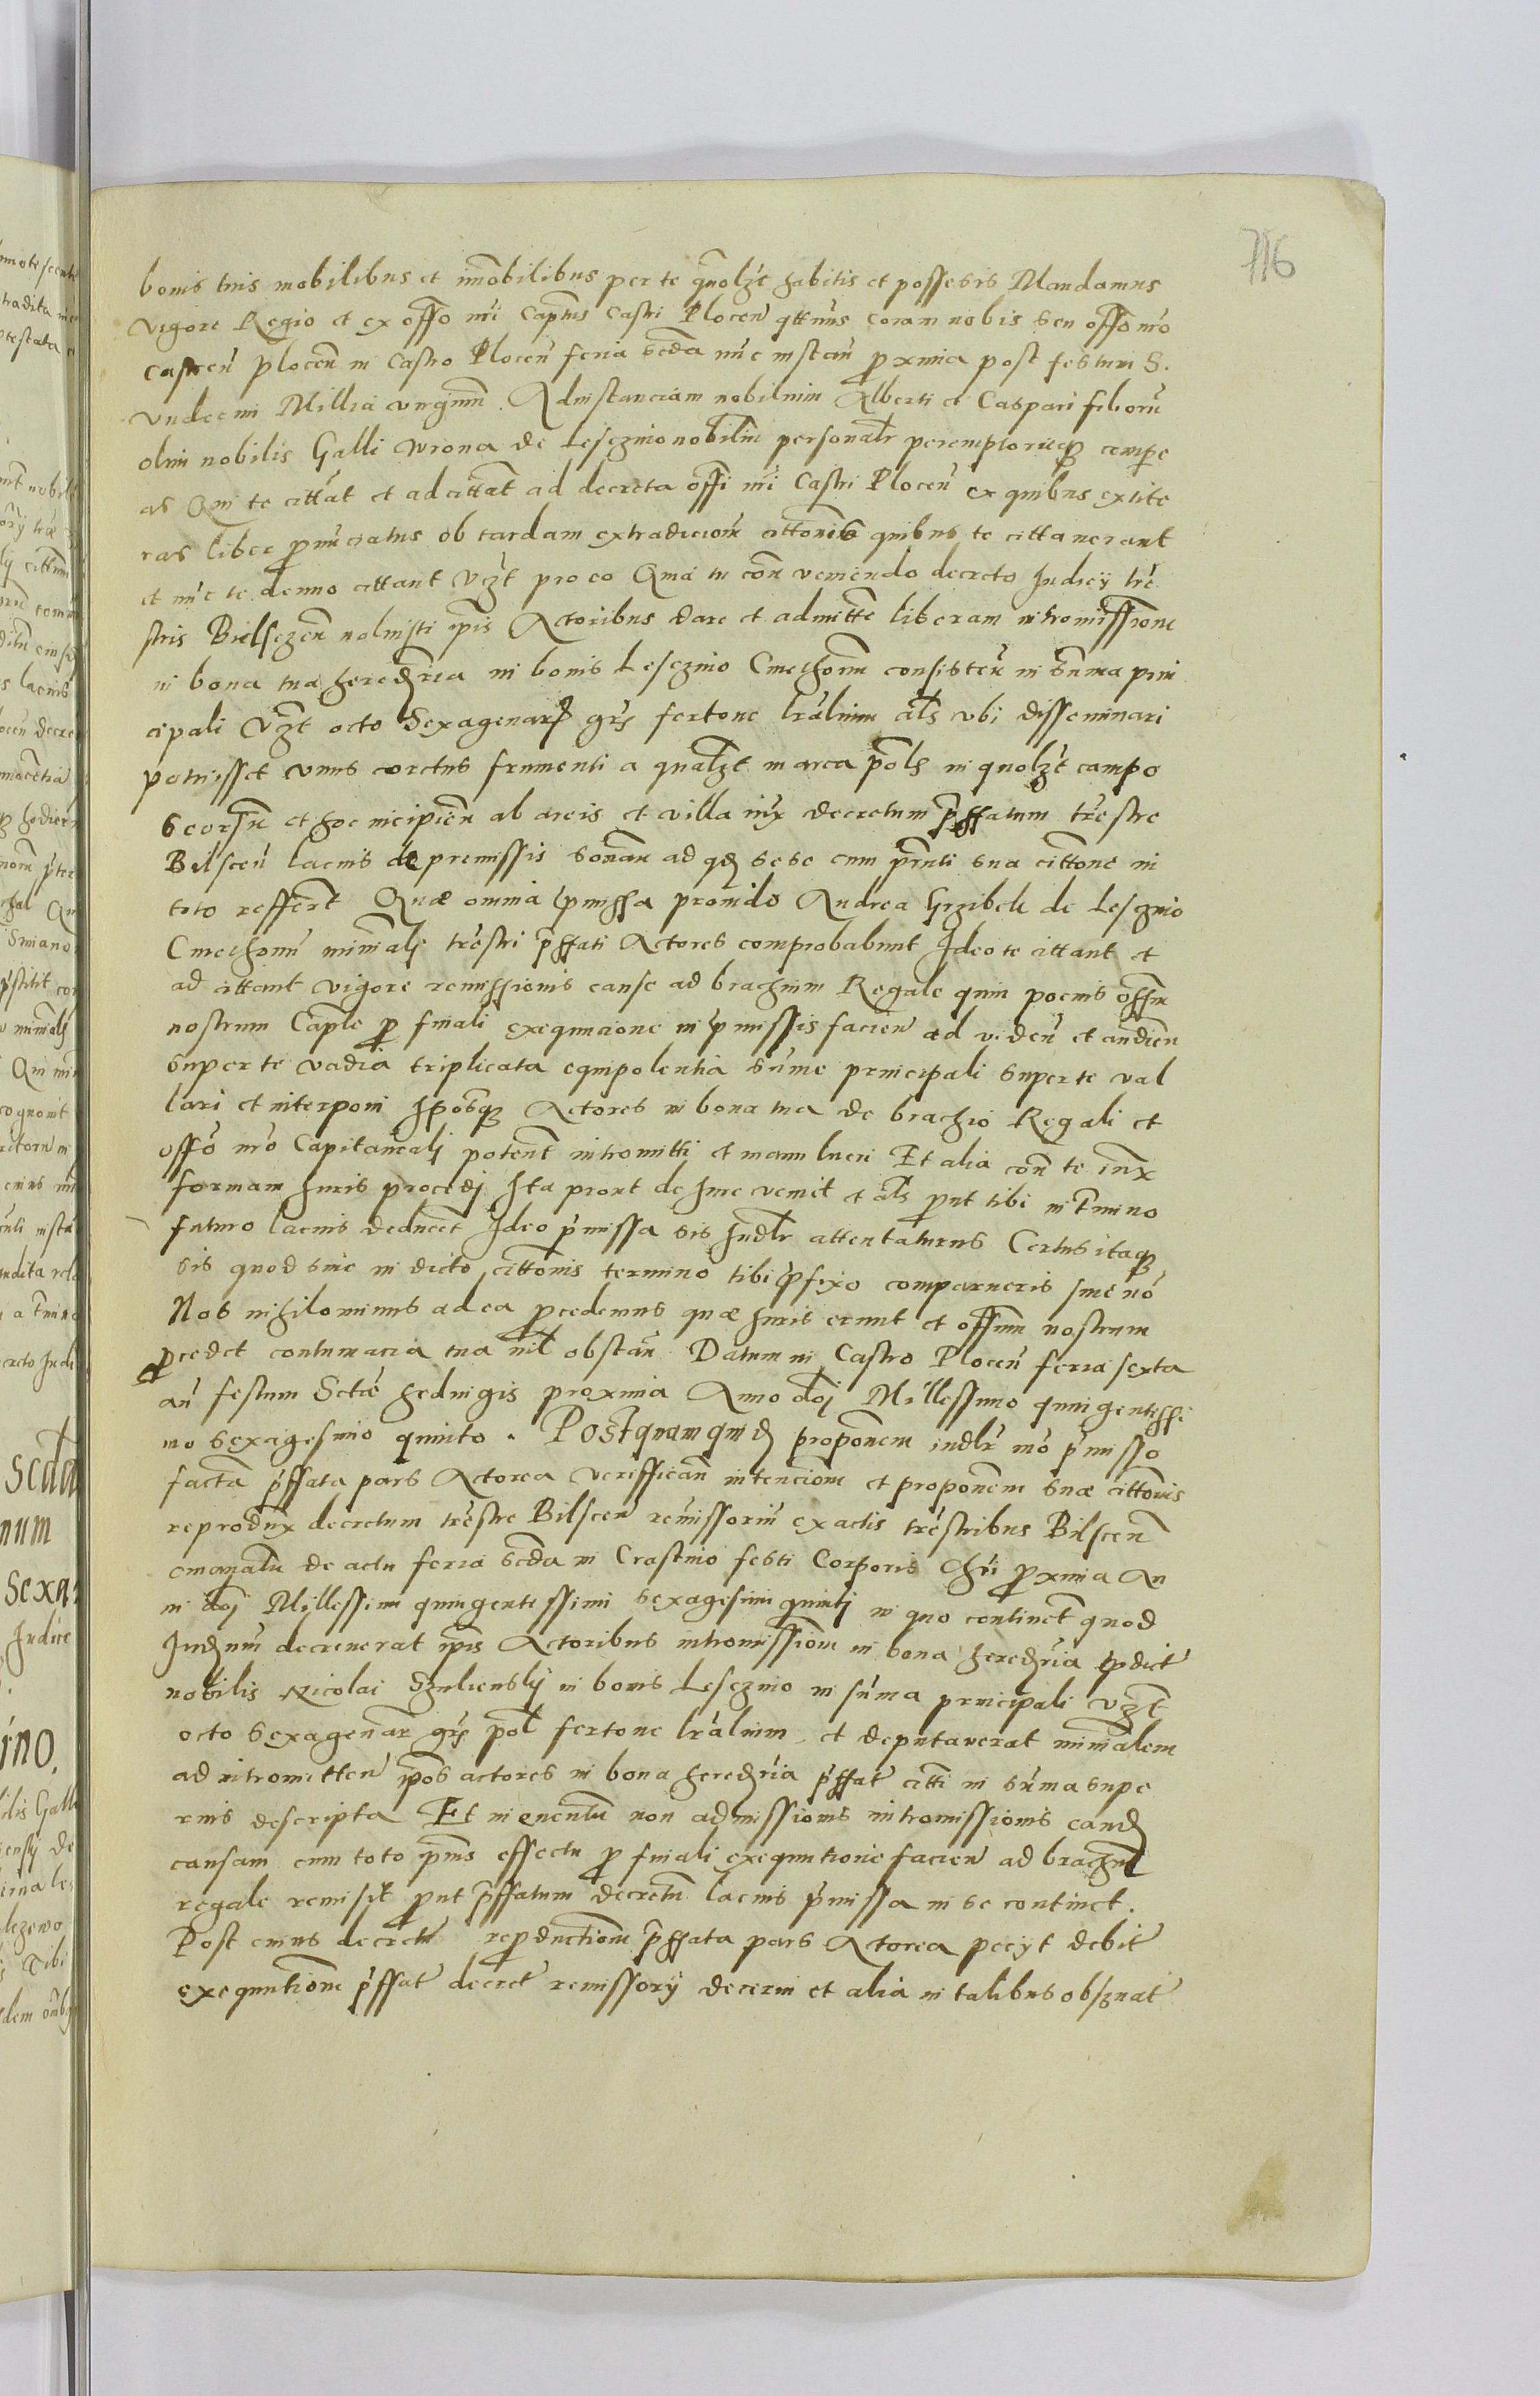 716
bonis tuis mobilibus et imobilibus per te quolzt habitis et possesis Mandamus
vigore Regio et ex offo nri Captus Castri Plocen qttnus coram nobis seu offo nro
castren plocen in Castro Plocen feria scda nuc instan proxima post festum S.
Undecim Millia virginum Ad instanciam nobilium Alberti et Caspari filioru
olim nobilis Galli wrona de Lesczino nobilium personalr peremptorieq compe
as Qui te cittat et ad cittat ad decreta offi nri Castri Plocen ex quibus extite
ras liber pronuciatus ob tardam extradiciom cittonis quibus te cittaverant
et nuc te denuo cittant Vzt pro eo Quia tu con veniendo decreto Judicij tre
stris Bielsczen noluisti ipis Actoribus dare et admitte liberam intromissione
in bona tua heredria in bonis Lesczino Cmethonu consisten in suma prin
cipali Vzt octo Sexagenar grs fertone lralium als ubi disseminari
potuisset unus corctus frumenti a qualzt marca pols in quolzt campo
seorsu et hoc incipien ab areis et villa iux decretum pffatum trestre
Bilscen lacius de premissis sonan ad qd sese cum prnti sua cittone in
toto reffert Quæ omnia pmissa provido Andrea Grzibek de Lesczino
Cmethonu minali trestri pffati Actores comprobabunt Ideo te cittant et
ad cittant vigore remissionis cause ad brachium Regale quin poenis offm
nostrum Caple pro finali exequucione in pmissis facien ad viden et audien
super te vadia triplicata equipolentia sume principali super te val
lari et interponi Iposq Actores in bona tua de brachio Regali et
offo nro Capitaneali potent intromitti et manu lneri Et alia con te iux
formam Juris procedj Ita prout de Jure venit et als prout tibi in tmino
futuro lacius deducet Ideo pmissa sis Judlr attentaturus Certus itaq
sis quod sive in dicto cittonis termino tibi pfixo comparueris sive no
Nos nihilominus ad ea procedemus quæ Juris erunt et offm nostrum
procedet contumacia tua nil obstan Datum in Castro Plocen feria sexta
an festum Sctæ hedvigis proxima Anno dni Millessimo quingentessi
mo sexagesimo quinto. Postquamquid proponem iudlr mo pmisso
facta pffata pars Actorea verifficam intenciom et proponem suæ cittonis
reprodux decretum trestre Bilscen remissoriu ex actis trestribus Bilscen
emanatu de actu feria scda in Crastino festi Corporis Chri proxima An
ni dnj Millessimi quingentessimi sexagesimi quintj in quo continet quod
Judium decreverat ipis Actoribus intromissiom in bona heredria pdict
nobilis Nicolai Szulienskj in bonis Lesczino in suma principali Vzt
octo sexagenar grs pol fertone lralium et deputaverat minialem
ad intromitten ipos actores in bona heredria pffat citti in suma supe
rius descripta Et in eventu non admissionis intromissionis eand
causam cum toto ipius effectu pro finali exequutione facien ad brachiu
regale remisit prout pffatum decretu lacius pmissa in se continet.
Post cuius decreti reproductiom pffata pars Actorea pecijt debit
exequutiom pffat decret remissorij decerni et alia in talibus obsznat